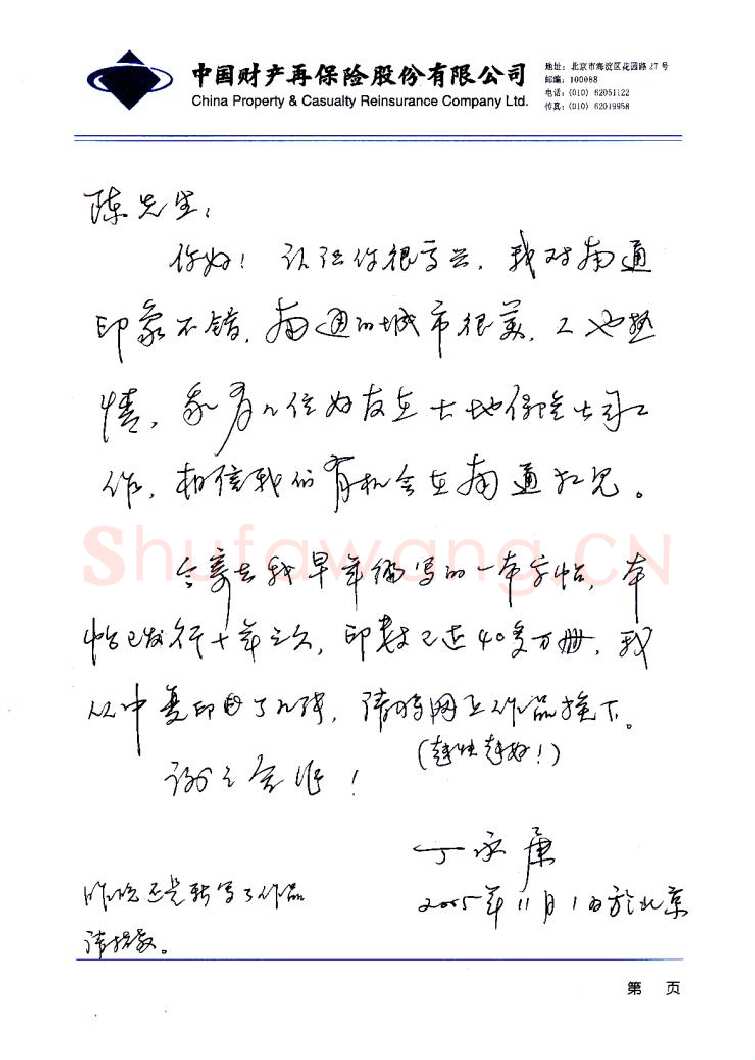 中国财产再保险股份有限公司
China Property & Casualty Reinsurance Company Ltd.
地址：北京市海淀区花园路27号
邮编：100088
电话：(010) 62051122
传真：(010) 62019958
陈先生：
你好！认识你很高兴，我对南通
印象不错，南通的城市很美，人也热
情，我有几位好友在大地保险公司工
作，相信我们有机会在南通相见。
今寄去我早年编写的一本字帖，本
帖已发行十年之久，印数已近40多万册，我
从中复印了几张，请将网上作品换下。
（越快越好！）
谢谢合作！
丁永康
2005年11月1日于北京
昨晚还是新写了作品
请指教。
Shufawang.CN
第 页